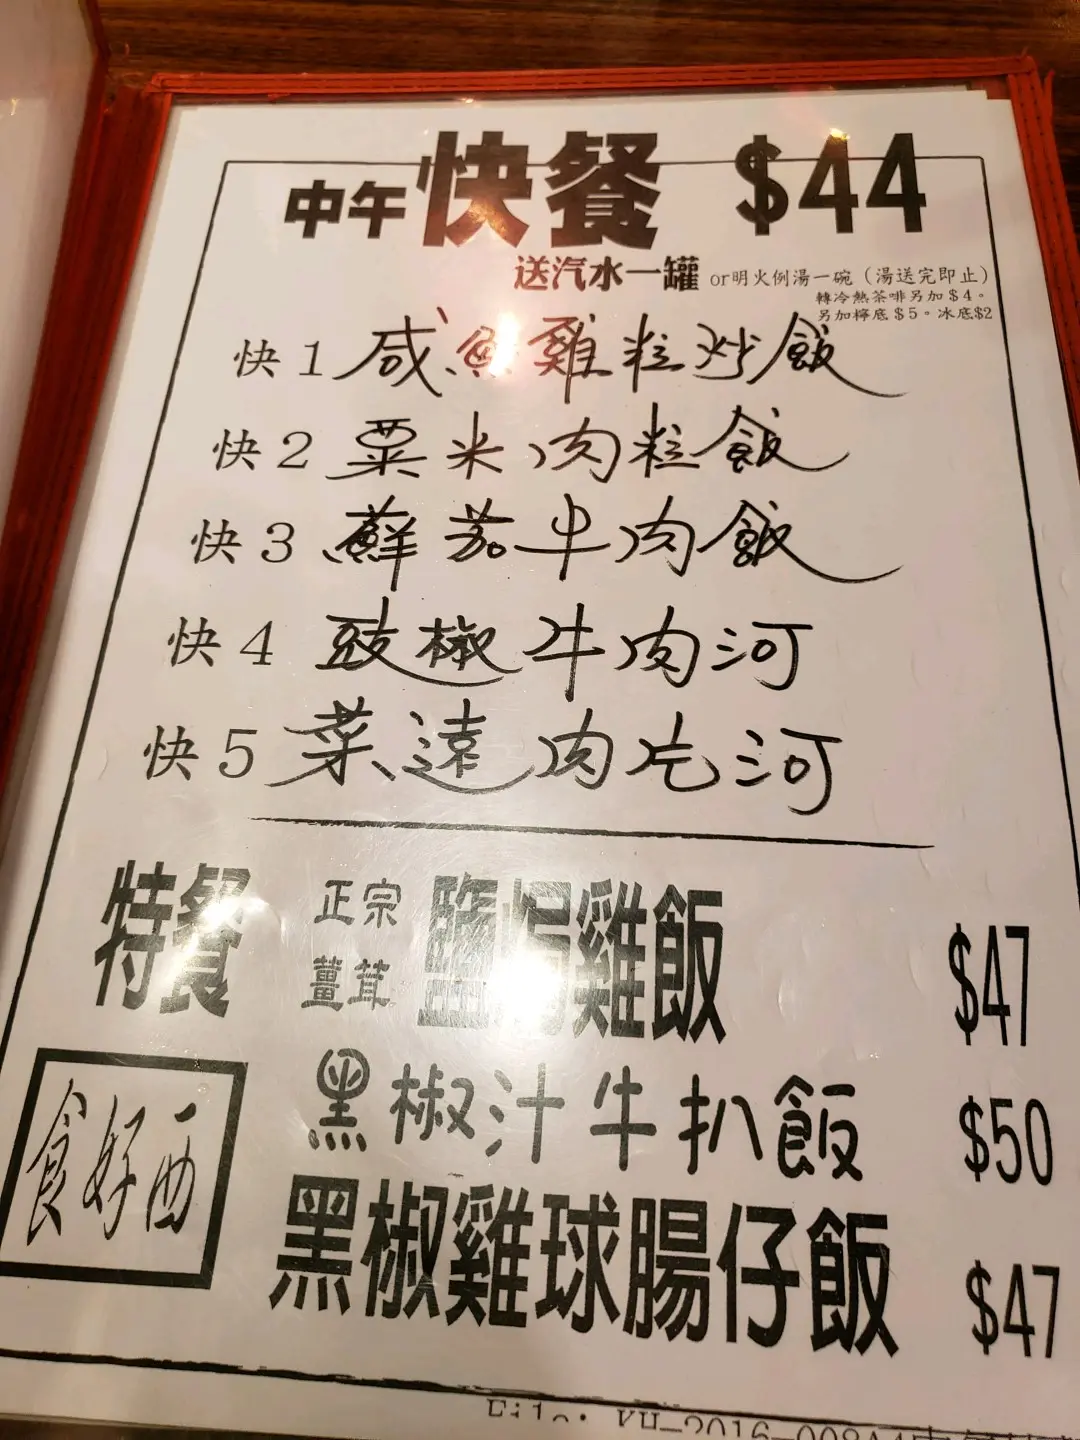 中午快餐 $44
送汽水一罐 or明火例湯一碗（湯送完即止）
轉冷熱茶啡另加$4。
另加檸底$5。冰底$2
快1 咸魚雞粒炒飯
快2 粟米肉粒飯
快3 蘇茄牛肉飯
快4 豉椒牛肉河
快5 菜遠肉片河
特餐 正宗薑茸 鹽焗雞飯 $47
黑椒汁牛扒飯 $50
食好西
黑椒雞球腸仔飯 $47